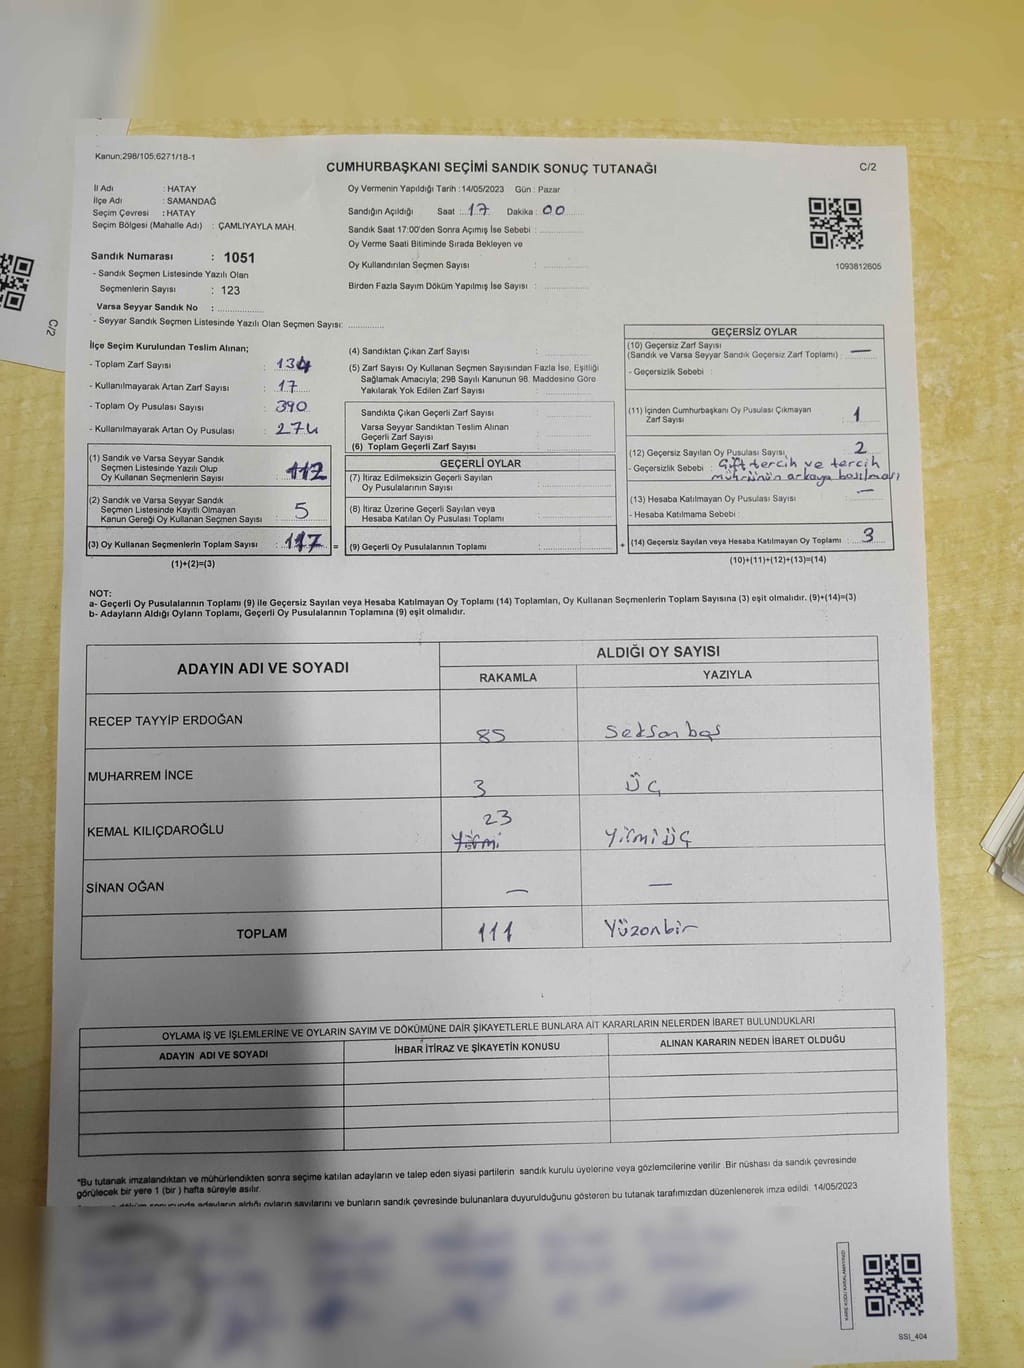 Kanun;298/105;6271/18-1
CUMHURBAŞKANI SEÇİMİ SANDIK SONUÇ TUTANAĞI
C/2
İl Adı : HATAY
İlçe Adı : SAMANDAĞ
Seçim Çevresi : HATAY
Seçim Bölgesi (Mahalle Adı) : ÇAMLIYAYLA MAH.
Oy Vermenin Yapıldığı Tarih : 14/05/2023 Gün : Pazar
Sandığın Açıldığı Saat : 17 Dakika : 00
Sandık Saat 17:00'den Sonra Açımış İse Sebebi :
Oy Verme Saati Bitiminde Sırada Bekleyen ve
Oy Kullandırılan Seçmen Sayısı :
Birden Fazla Sayım Döküm Yapılmış İse Sayısı :
1093812605
Sandık Numarası : 1051
- Sandık Seçmen Listesinde Yazılı Olan
Seçmenlerin Sayısı : 123
Varsa Seyyar Sandık No :
- Seyyar Sandık Seçmen Listesinde Yazılı Olan Seçmen Sayısı:
C/2
İlçe Seçim Kurulundan Teslim Alınan;
- Toplam Zarf Sayısı : 134
- Kullanılmayarak Artan Zarf Sayısı : 17
- Toplam Oy Pusulası Sayısı : 390
- Kullanılmayarak Artan Oy Pusulası : 274
(1) Sandık ve Varsa Seyyar Sandık
Seçmen Listesinde Yazılı Olup
Oy Kullanan Seçmenlerin Sayısı : 112
(2) Sandık ve Varsa Seyyar Sandık
Seçmen Listesinde Kayıtlı Olmayan
Kanun Gereği Oy Kullanan Seçmen Sayısı : 5
(3) Oy Kullanan Seçmenlerin Toplam Sayısı : 117 =
(1)+(2)=(3)
(4) Sandıktan Çıkan Zarf Sayısı :
(5) Zarf Sayısı Oy Kullanan Seçmen Sayısından Fazla İse, Eşitliği
Sağlamak Amacıyla; 298 Sayılı Kanunun 98. Maddesine Göre
Yakılarak Yok Edilen Zarf Sayısı :
Sandıkta Çıkan Geçerli Zarf Sayısı :
Varsa Seyyar Sandıktan Teslim Alınan
Geçerli Zarf Sayısı :
(6) Toplam Geçerli Zarf Sayısı :
GEÇERLİ OYLAR
(7) İtiraz Edilmeksizin Geçerli Sayılan
Oy Pusulalarının Sayısı :
(8) İtiraz Üzerine Geçerli Sayılan veya
Hesaba Katılan Oy Pusulası Toplamı :
(9) Geçerli Oy Pusulalarının Toplamı :
GEÇERSİZ OYLAR
(10) Geçersiz Zarf Sayısı
(Sandık ve Varsa Seyyar Sandık Geçersiz Zarf Toplamı) : —
- Geçersizlik Sebebi :
(11) İçinden Cumhurbaşkanı Oy Pusulası Çıkmayan
Zarf Sayısı : 1
(12) Geçersiz Sayılan Oy Pusulası Sayısı : 2
- Geçersizlik Sebebi : Çift tercih ve tercih
mührünün arkaya basılması
(13) Hesaba Katılmayan Oy Pusulası Sayısı : —
- Hesaba Katılmama Sebebi :
+ (14) Geçersiz Sayılan veya Hesaba Katılmayan Oy Toplamı : 3
(10)+(11)+(12)+(13)=(14)
NOT:
a- Geçerli Oy Pusulalarının Toplamı (9) ile Geçersiz Sayılan veya Hesaba Katılmayan Oy Toplamı (14) Toplamları, Oy Kullanan Seçmenlerin Toplam Sayısına (3) eşit olmalıdır. (9)+(14)=(3)
b- Adayların Aldığı Oyların Toplamı, Geçerli Oy Pusulalarının Toplamına (9) eşit olmalıdır.
ADAYIN ADI VE SOYADI
ALDIĞI OY SAYISI
RAKAMLA YAZIYLA
RECEP TAYYİP ERDOĞAN 85 Seksan beş
MUHARREM İNCE 3 Üç
KEMAL KILIÇDAROĞLU 23 Yirmi Yirmi Üç
SİNAN OĞAN — —
TOPLAM 111 Yüzonbir
OYLAMA İŞ VE İŞLEMLERİNE VE OYLARIN SAYIM VE DÖKÜMÜNE DAİR ŞİKAYETLERLE BUNLARA AİT KARARLARIN NELERDEN İBARET BULUNDUKLARI
ADAYIN ADI VE SOYADI İHBAR İTİRAZ VE ŞİKAYETİN KONUSU ALINAN KARARIN NEDEN İBARET OLDUĞU
*Bu tutanak imzalandıktan ve mühürlendikten sonra seçime katılan adayların ve talep eden siyasi partilerin sandık kurulu üyelerine veya gözlemcilerine verilir .Bir nüshası da sandık çevresinde
görülecek bir yere 1 (bir ) hafta süreyle asılır.
döküm sonucunda adayların aldığı oyların sayılarını ve bunların sandık çevresinde bulunanlara duyurulduğunu gösteren bu tutanak tarafımızdan düzenlenerek imza edildi. 14/05/2023
KARE KODU KARALAMAYINIZ!
SSI_404